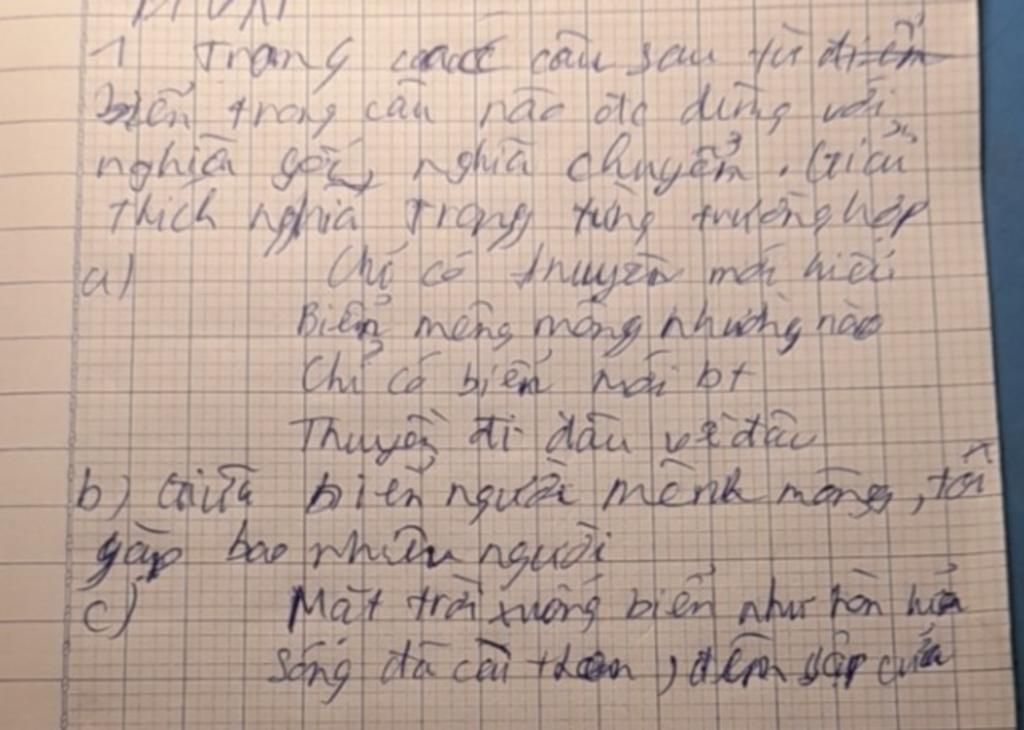 1 Trong các câu sau từ
biển trong câu nào đc dùng với
nghĩa gốc, nghĩa chuyển. Giải
thích nghĩa trong từng trường hợp
a) Chỉ có thuyền mới hiểu
Biển mông mông nhường nào
Chỉ có biển mới bt
Thuyền đi đâu về đâu
b) Giữa biển người mênh mông, tôi
gặp bao nhiêu người
c) Mặt trời xuống biển như hòn lửa
Sóng đã cài then, đêm sập cửa